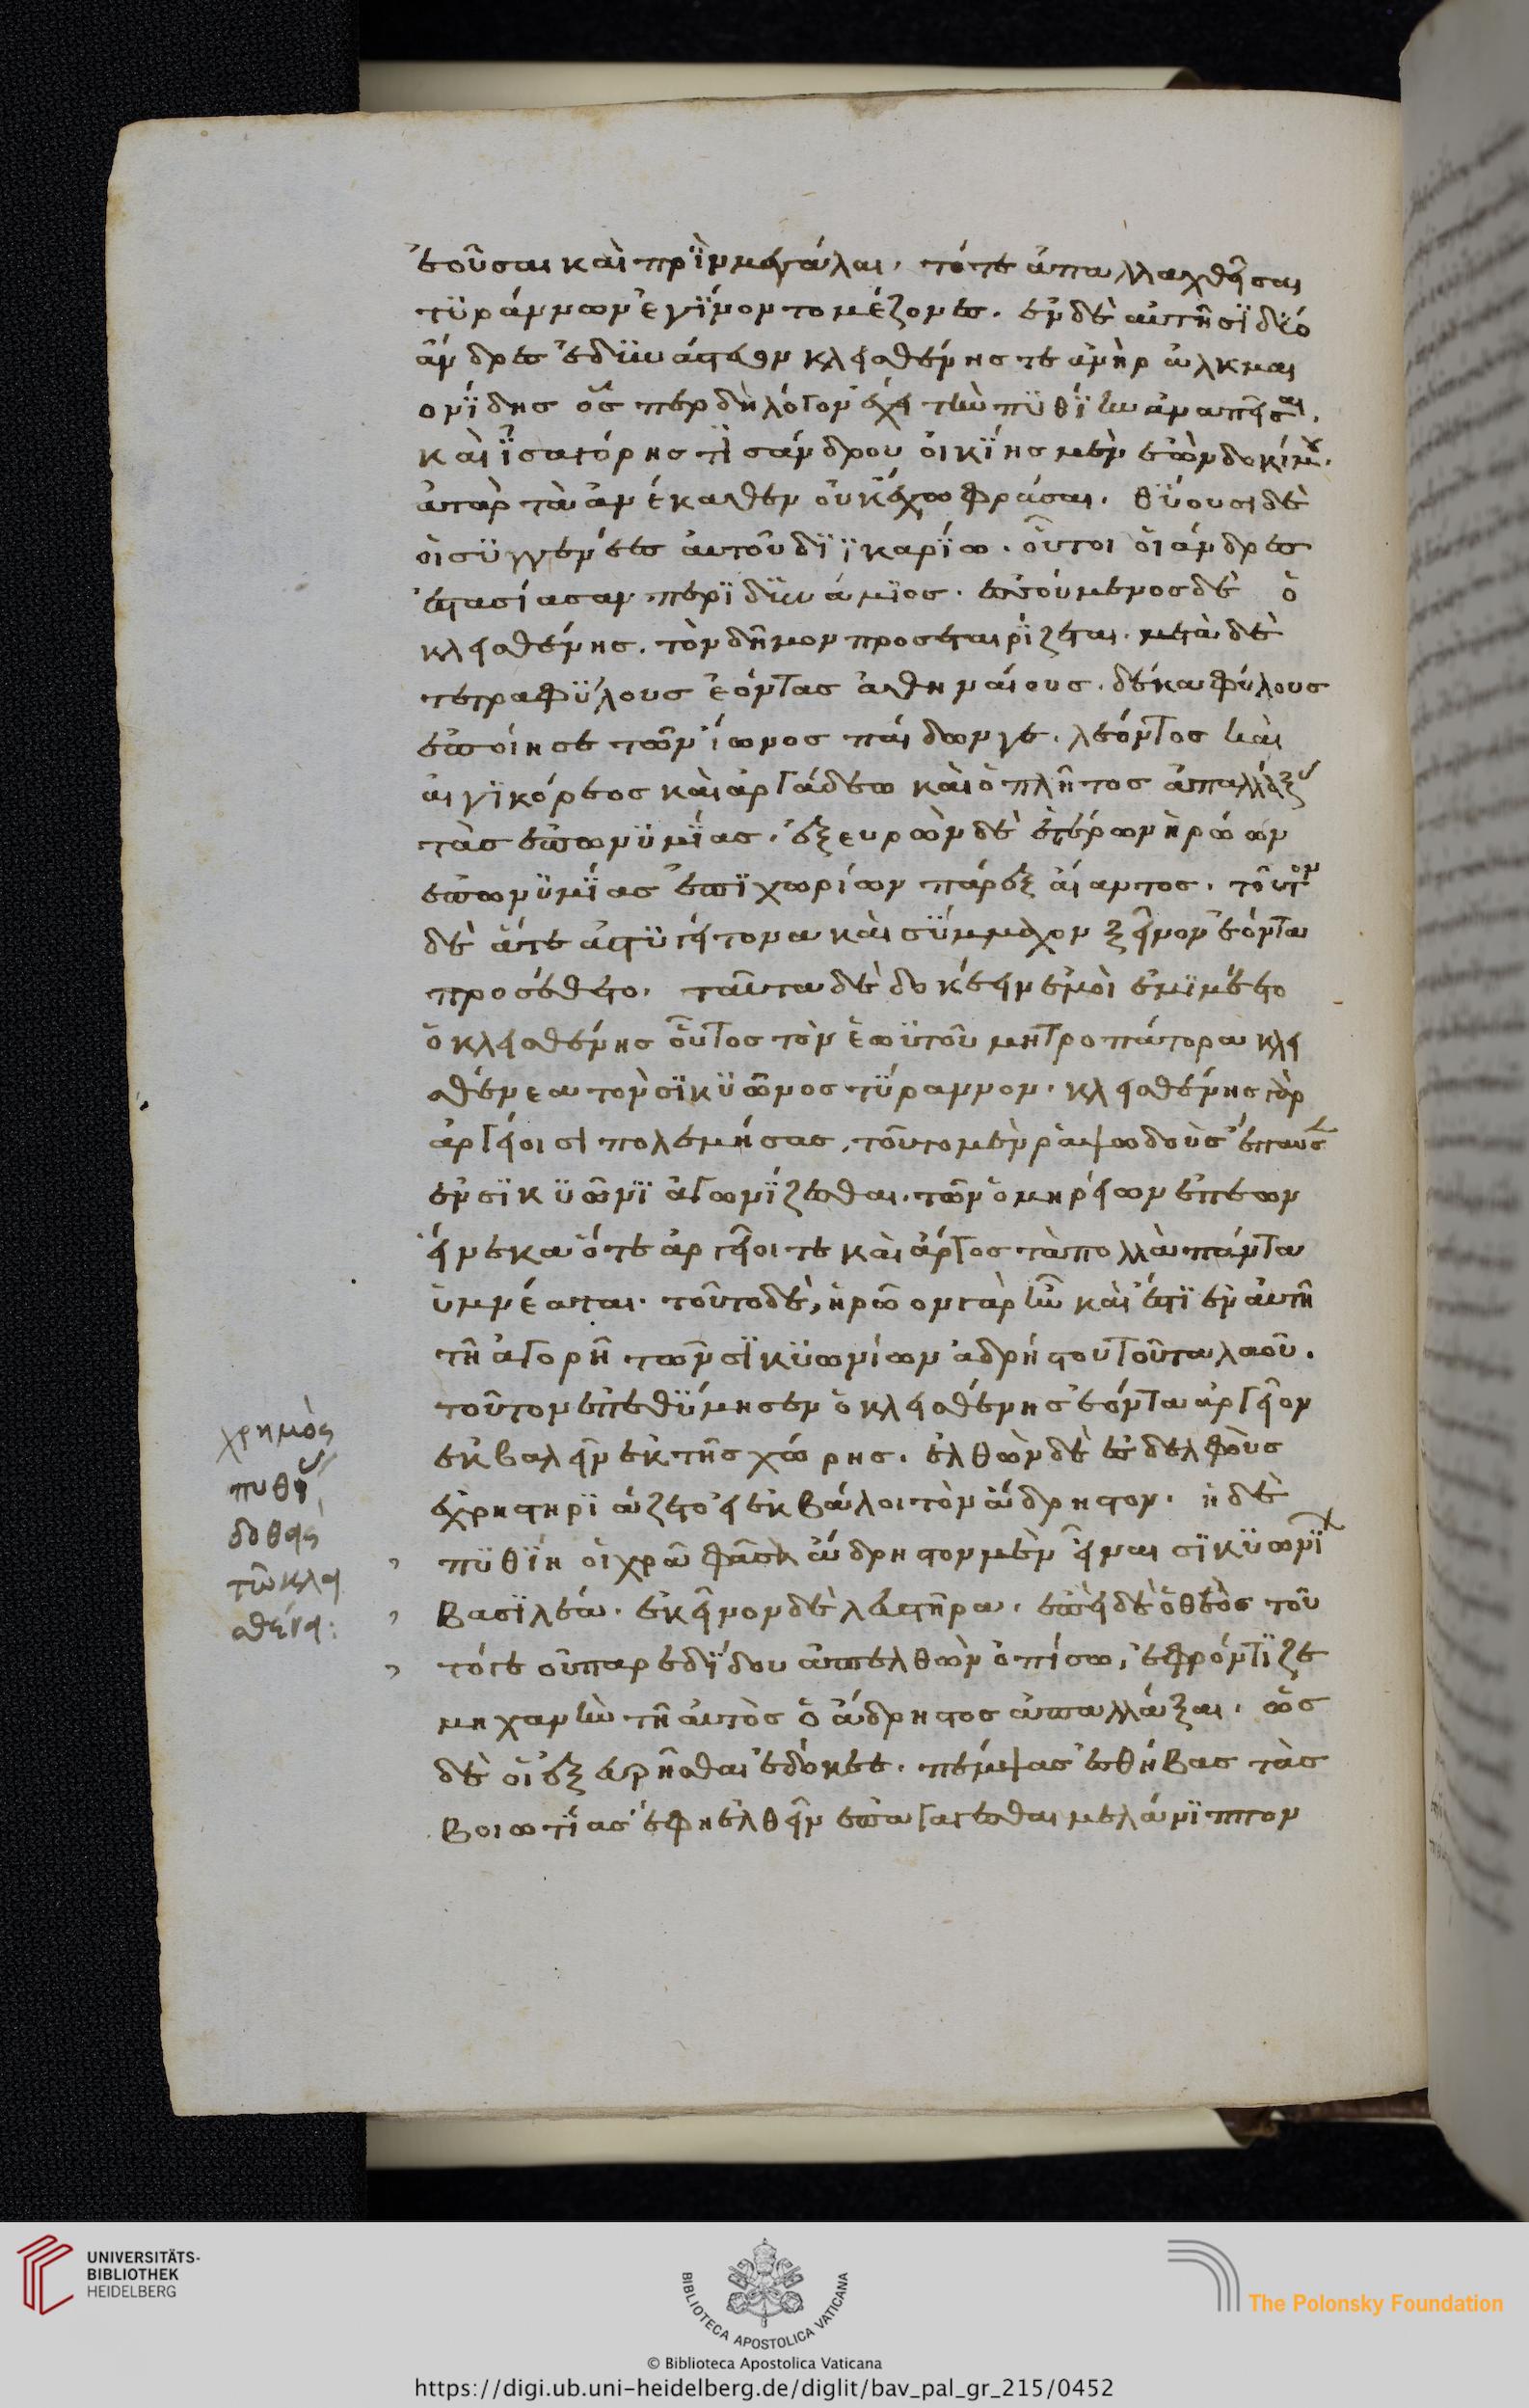 ἐοῦσαι καὶ πρὶν μεγάλαι, τότε ἀπαλλαχθεῖσαι
τυράννων ἐγίνοντο μέζονες. ἐν δὲ αὐτῆισι δύο
ἄνδρες ἐδυνάστευον κλεισθένης τε ἀνὴρ ἀλκμαι
ονίδης ὅσπερ δὴ λόγον ἔχει τὴν πυθίην ἀναπεῖσαι.
καὶ ἰσαγόρης τισάνδρου οἰκίης μὲν ἐὼν δοκίμου.
ἀτὰρ τὰ ἀνέκαθεν οὐκ ἔχω φράσαι. θύουσι δὲ
οἱ συγγενέες αὐτοῦ διῒ καρίω. οὗτοι οἱ ἄνδρες
ἐστασίασαν περὶ δυνάμιος. ἑσσούμενος δὲ ὁ
κλεισθένης. τὸν δῆμον προσεταιρίζεται. μετὰ δὲ
τετραφύλους ἐόντας ἀθηναίους. δεκαφύλους
ἐποίησε τῶν ἴωνος παίδων γε. λέοντος καὶ
αἰγικόρεος καὶ ἀργάδεω καὶ ὅπλητος ἀπαλλάξας
τὰς ἐπωνυμίας. ἐξευρὼν δὲ ἑτέρων ἡρώων
ἐπωνυμίας ἐπιχωρίων πάρεξ αἴαντος. τοῦτον
δὲ ἅτε ἀστυγείτονα καὶ σύμμαχον ξεῖνον ἐόντα
προσέθετο. ταῦτα δὲ δοκέειν ἐμοὶ ἐμιμέετο
ὁ κλεισθένης οὗτος τὸν ἑωυτοῦ μητροπάτορα κλει
σθένεα τὸν σικυῶνος τύραννον. κλεισθένης γὰρ
ἀργείοισι πολεμήσας, τοῦτο μὲν ῥαψωδοὺς ἔπαυσε
ἐν σικυῶνι ἀγωνίζεσθαι. τῶν ὁμηρείων ἐπέων
εἵνεκα ὅτε ἀργεῖοί τε καὶ ἄργος τὰ πολλὰ πάντα
ὑμνέαται. τοῦτο δὲ, ἡρῶον γὰρ ἦν καὶ ἔστι ἐν αὐτῆ
τῆ ἀγορῆ τῶν σικυωνίων ἀδρήστου τοῦ ταλαοῦ.
τοῦτον ἐπεθύμησεν ὁ κλεισθένης ἐόντα ἀργεῖον
ἐκβαλεῖν ἐκ τῆς χώρης. ἐλθὼν δὲ ἐς δελφοὺς
ἐχρηστηριάζετο εἰ ἐκβάλοι τὸν ἄδρηστον. ἡ δὲ
πυθίη οἱ χρᾶ φᾶσα ἄδρηστον μὲν εἶναι σικυωνίων
βασιλέα. ἐκεῖνον δὲ λευστῆρα. ἐπεὶ δὲ ὁ θεὸς τοῦ
τό γε οὐ παρεδίδου ἀπελθὼν ὀπίσω, ἐφρόντιζε
μηχανὴν τῆ αὐτὸς ὁ ἄδρηστος ἀπαλλάξαι. ὡς
δὲ οἱ ἐξευρῆσθαι ἐδόκεε. πέμψας ἐς θήβας τὰς
βοιωτίας ἔφη ἐλθεῖν ἐπαγαγέσθαι μελάνιππον
χρησμὸς
πυθίας
δοθεὶς
τῶ κλει
σθένει:
UNIVERSITÄTS-
BIBLIOTHEK
HEIDELBERG
BIBLIOTECA APOSTOLICA VATICANA
The Polonsky Foundation
© Biblioteca Apostolica Vaticana
https://digi.ub.uni-heidelberg.de/diglit/bav_pal_gr_215/0452